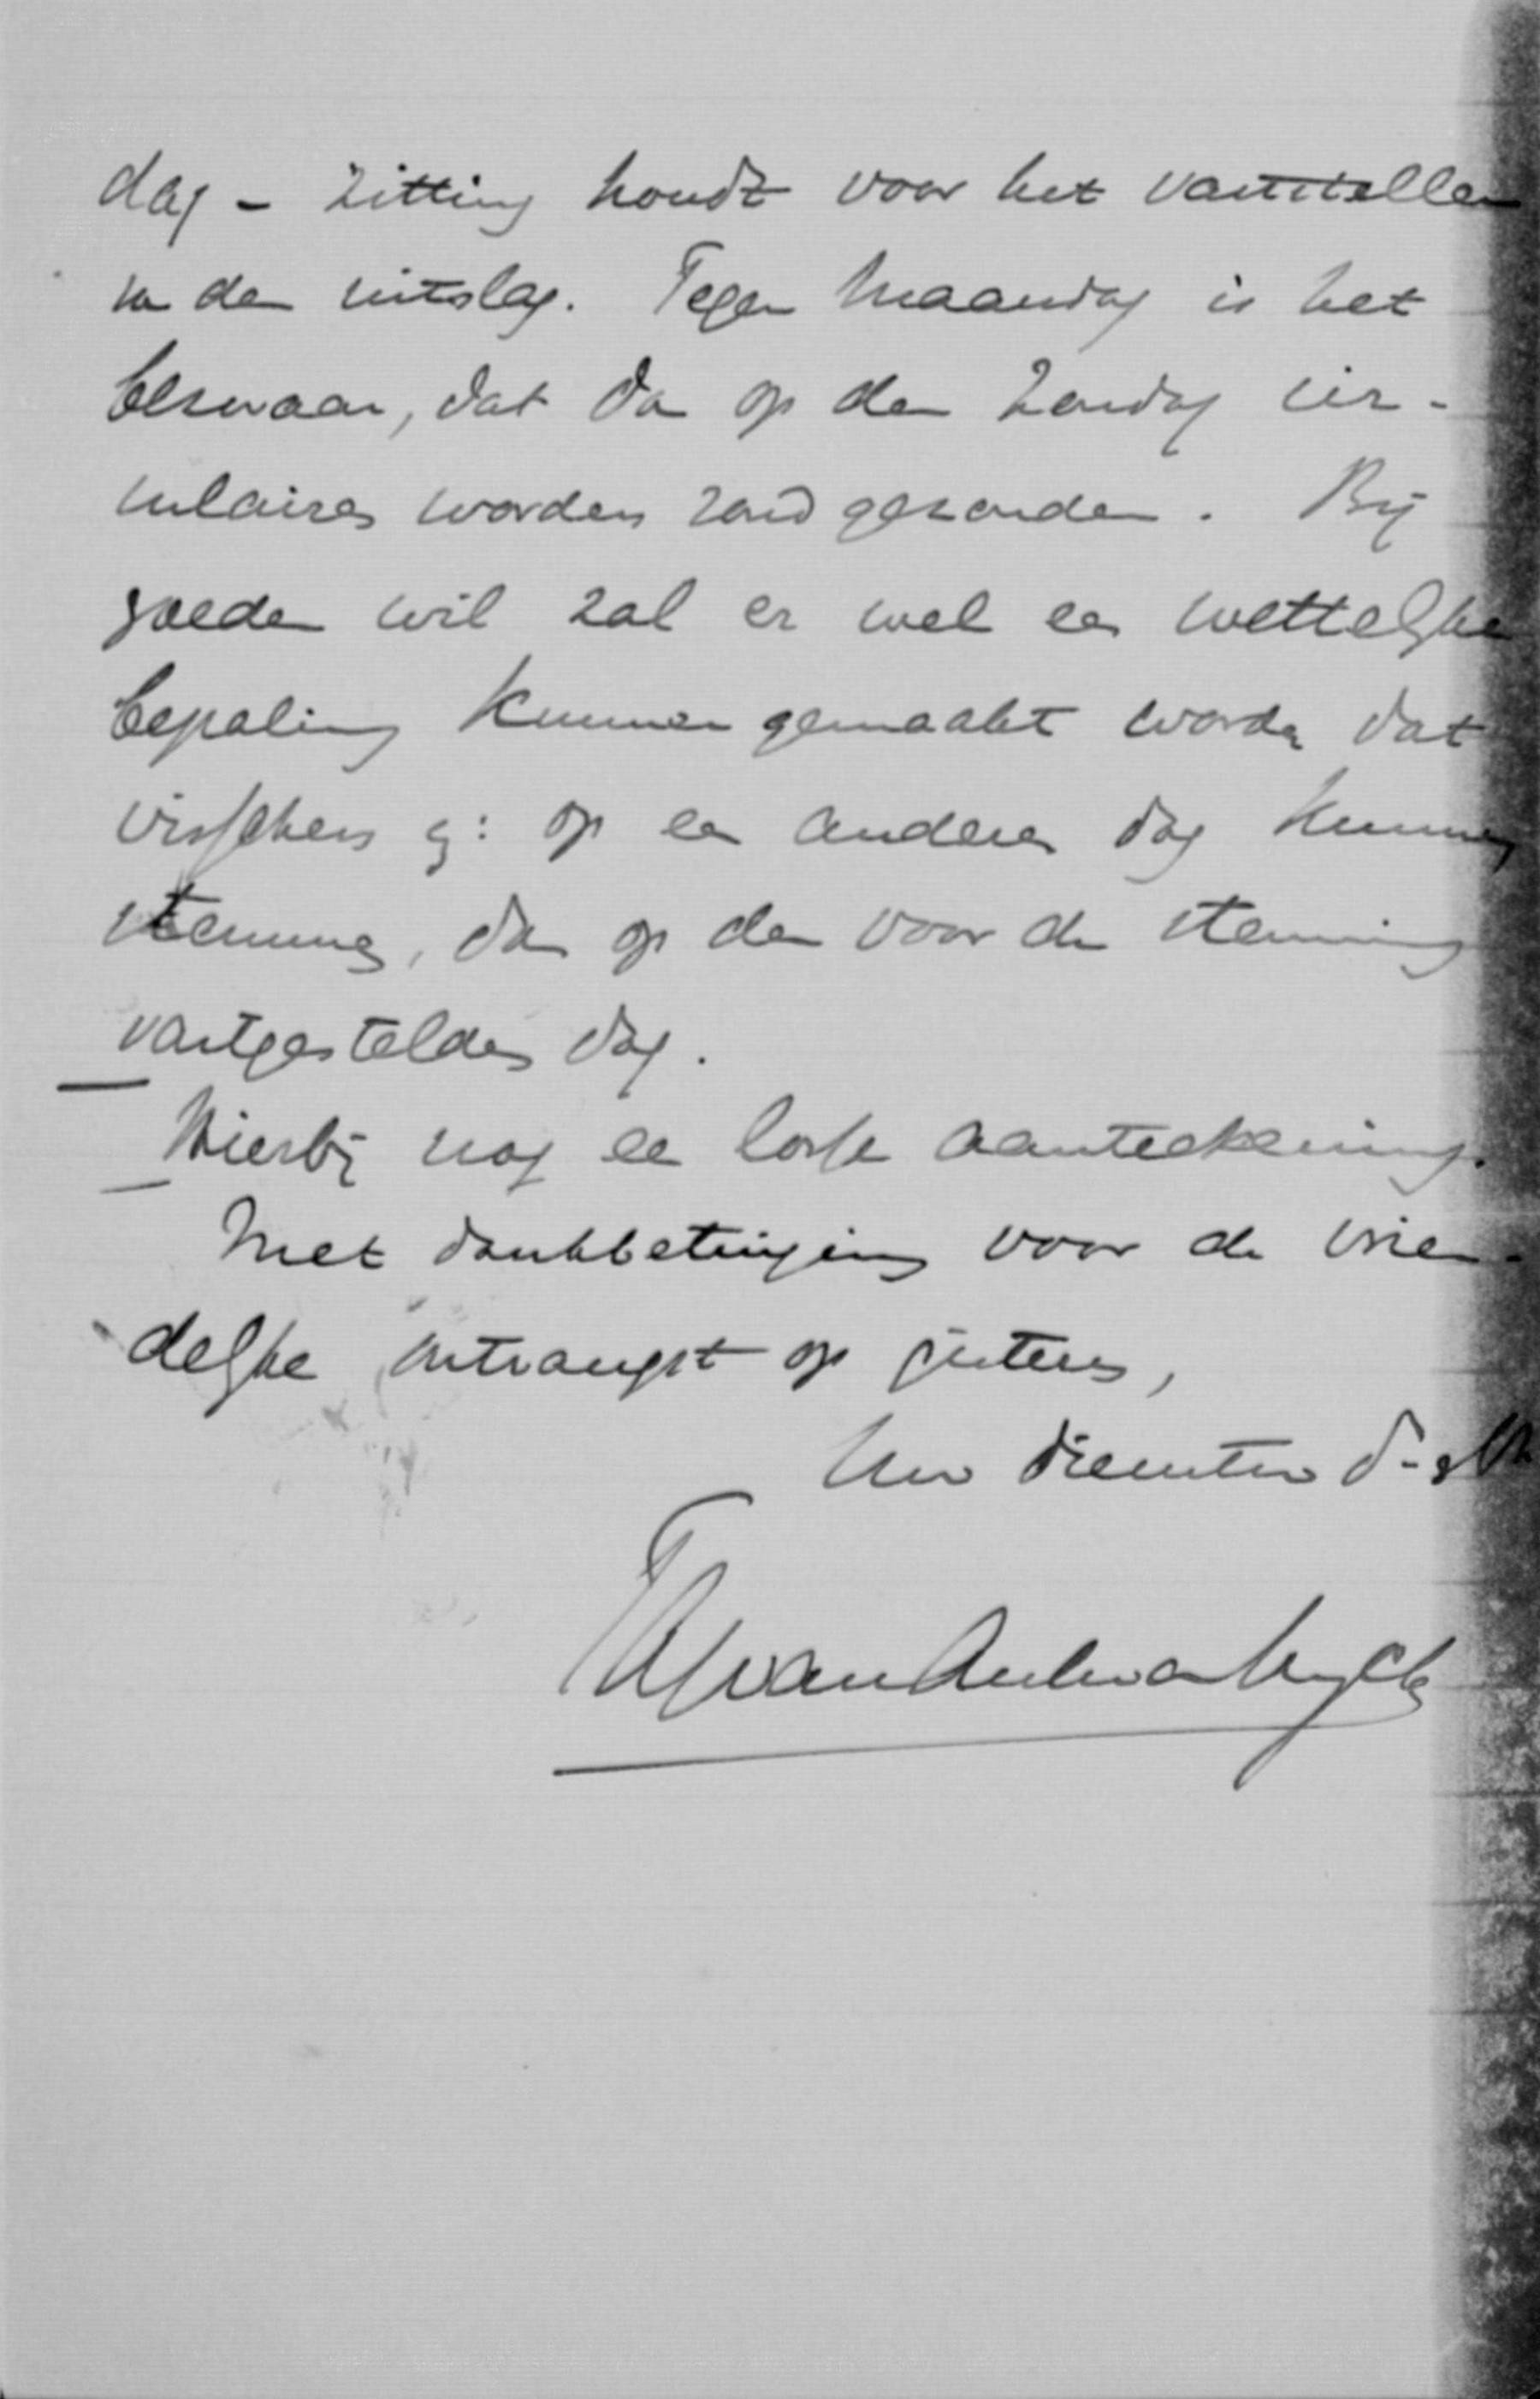 dag – zitting houdt voor het vaststellen
van den uitslag. Tegen Maandag is het
bezwaar, dat dan op den Zondag cir-
culaires worden rondgezonden. Bij
goeden wil zal er wel een wettelijke
bepaling kunnen gemaakt worden dat
visschers op een anderen dag kunnen
stemmen, dan op den voor de stemming
vastgestelden dag.
Hierbij nog een losse aanteekening.
Met dankbetuiging voor de vrien-
delijke ontvangst op gisteren,
Uw dienstw